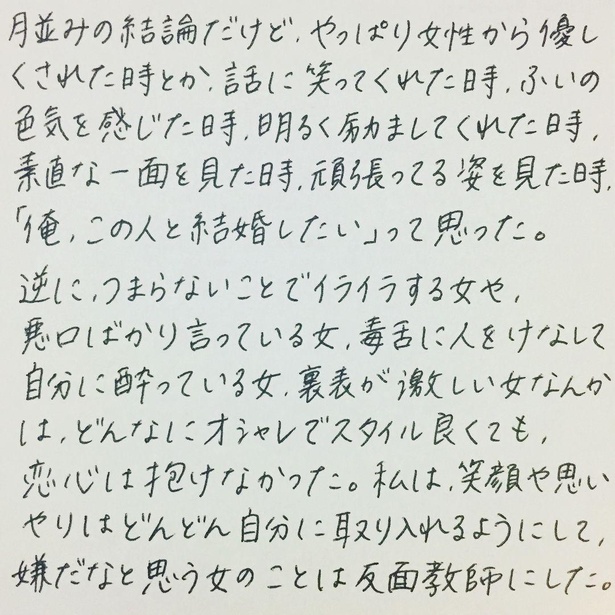 月並みの結論だけど、やっぱり女性から優し
くされた時とか、話に笑ってくれた時、ふいの
色気を感じた時、明るく励ましてくれた時、
素直な一面を見た時、頑張ってる姿を見た時、
「俺、この人と結婚したい」って思った。
逆に、つまらないことでイライラする女や、
悪口ばかり言っている女、毒舌に人をけなして
自分に酔っている女、裏表が激しい女なんか
は、どんなにオシャレでスタイル良くても、
恋心は抱けなかった。私は、笑顔や思い
やりはどんどん自分に取り入れるようにして、
嫌だなと思う女のことは反面教師にした。